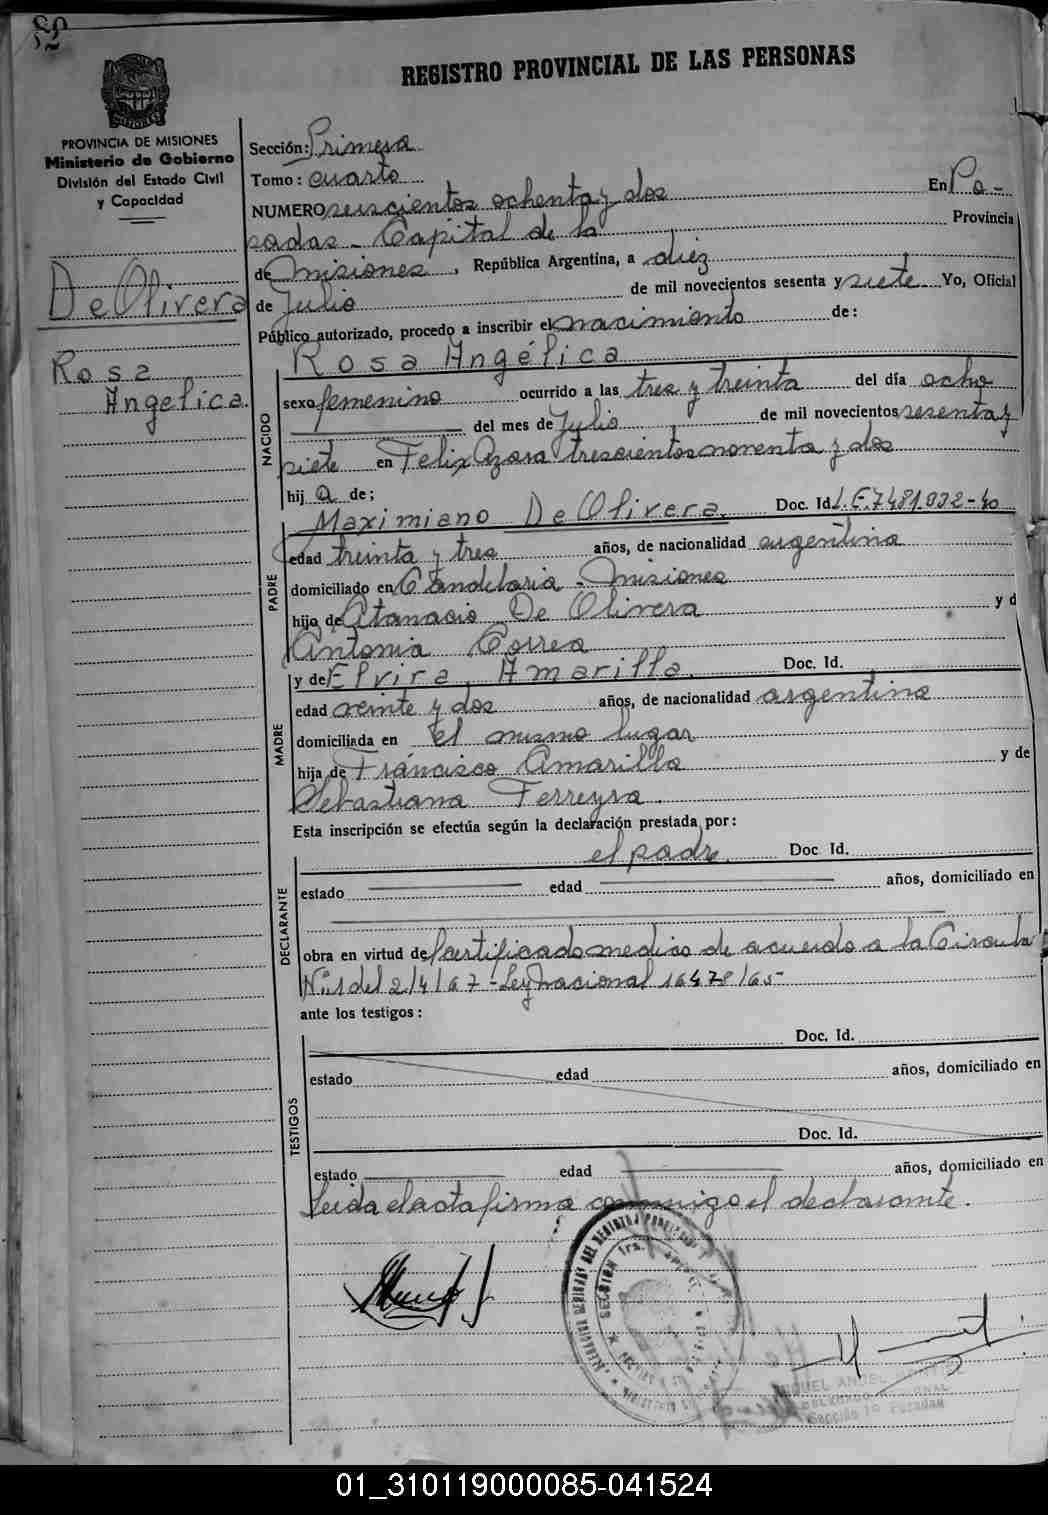 REGISTRO PROVINCIAL DE LAS PERSONAS
PROVINCIA DE MISIONES
Ministerio de Gobierno
División del Estado Civil
y Capacidad
De Olivera
Rosa
Angelica.
Sección: Primera
Tomo: cuarto
NUMERO seiscientos ochenta y dos En Po-
sadas - Capital de la Provincia
de Misiones, República Argentina, a diez
de Julio de mil novecientos sesenta y siete Yo, Oficial
Público autorizado, procedo a inscribir el nacimiento de:
NACIDO
Rosa Angélica
sexo femenino ocurrido a las tres y treinta del día ocho
del mes de Julio de mil novecientos sesenta y
siete en Felix Azara trescientos noventa y dos
hij a de;
PADRE
Maximiano De Olivera. Doc. Id. L.E.7481.032-40
edad treinta y tres años, de nacionalidad argentina
domiciliado en Candelaria - Misiones
hijo de Atanacio De Olivera y d
Antonia Correa
MADRE
y de Elvira Amarilla. Doc. Id.
edad veinte y dos años, de nacionalidad argentina
domiciliada en el mismo lugar
hija de Francisco Amarilla y de
Sebastiana Ferreyra.
Esta inscripción se efectúa según la declaración prestada por:
DECLARANTE
el padre. Doc Id.
estado edad años, domiciliado en
obra en virtud de certificado medico de acuerdo a la Circula
N:1 del 2/4/67 - Ley nacional 16478/65-
ante los testigos:
TESTIGOS
Doc. Id.
estado edad años, domiciliado en
Doc. Id.
estado edad años, domiciliado en
Leida el acta firma conmigo el declarante.
SECCION 1ra.
MIGUEL ANGEL
Sección 1a Posadas
01_310119000085-041524